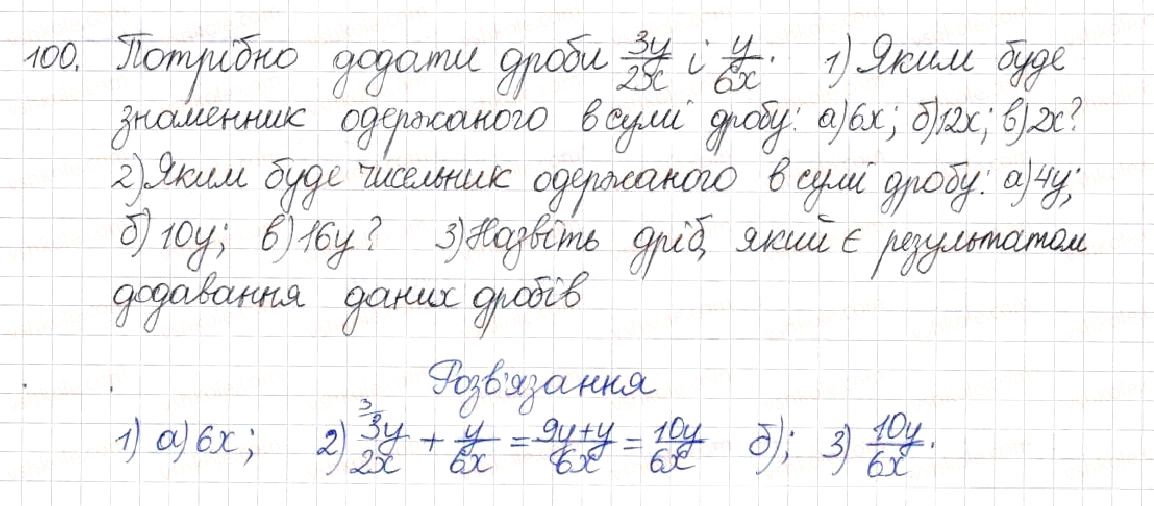 100. Потрібно додати дроби 3y/2x і y/6x. 1) Яким буде
знаменник одержаного в сумі дробу: а) 6x; б) 12x; в) 2x?
2) Яким буде чисельник одержаного в сумі дробу: а) 4y;
б) 10y; в) 16y? 3) Назвіть дріб, який є результатом
додавання даних дробів
Розв'язання
1) а) 6x; 2) ³⁄ 3y/2x + y/6x = 9y+y/6x = 10y/6x б); 3) 10y/6x.